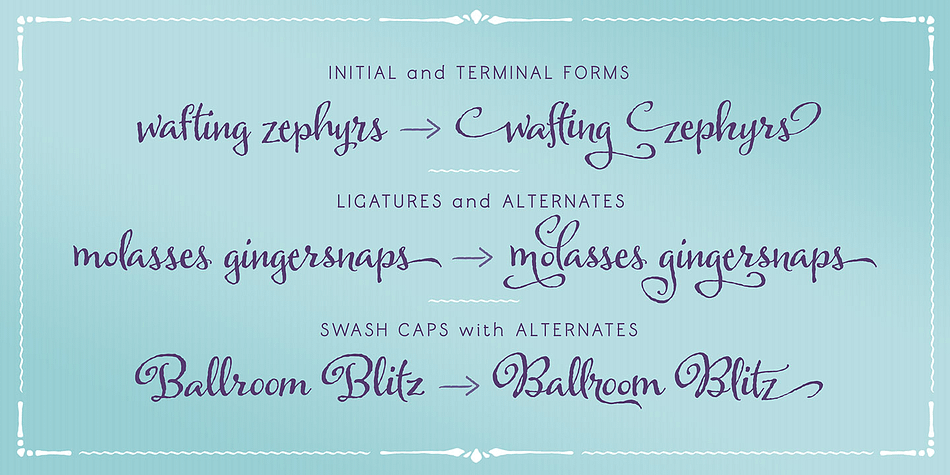 INITIAL and TERMINAL FORMS
wafting zephyrs → wafting zephyrs
LIGATURES and ALTERNATES
molasses gingersnaps → molasses gingersnaps
SWASH CAPS with ALTERNATES
Ballroom Blitz → Ballroom Blitz